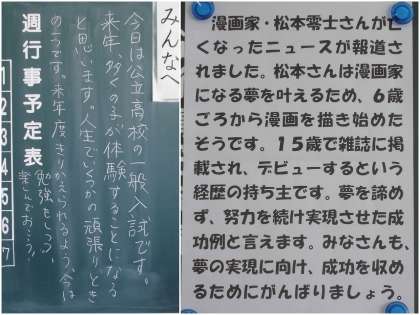 みんなへ
今日は公立高校の一般入試です。
来年、多くの子が体験することになる
と思います。人生でいくつかの頑張りどき
の1つです。来年度きりかえられるよう、今は
勉強もしつつ
楽しんでおこう!
週行事予定表
1
2
3
4
5
6
7
漫画家・松本零士さんが亡
くなったニュースが報道さ
れました。松本さんは漫画家
になる夢を叶えるため、6歳
ごろから漫画を描き始めた
そうです。15歳で雑誌に掲
載され、デビューするという
経歴の持ち主です。夢を諦め
ず、努力を続け実現させた成
功例と言えます。みなさんも、
夢の実現に向け、成功を収め
るためにがんばりましょう。